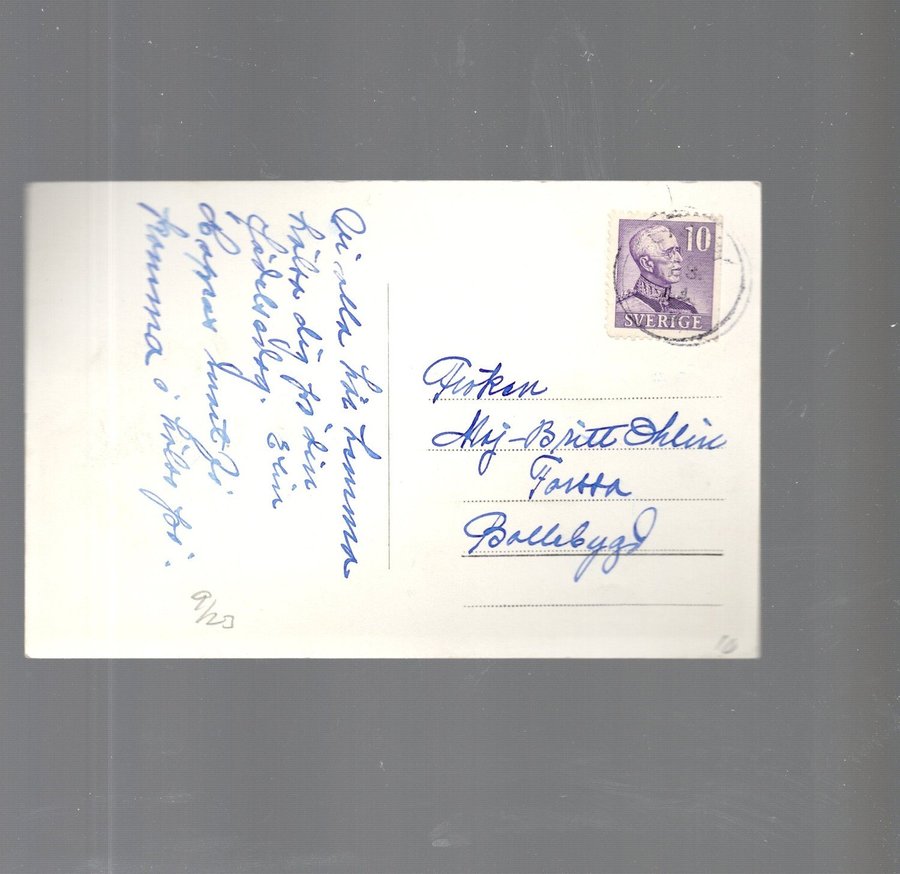 Vi alla här hemma
hälsa dig på din
födelsedag.
Elin
Hoppas snart få
komma o hälsa på.
9/23
10
SVERIGE
Fröken
Maj-Britt Ohlin
Forssa
Bollebygd
16